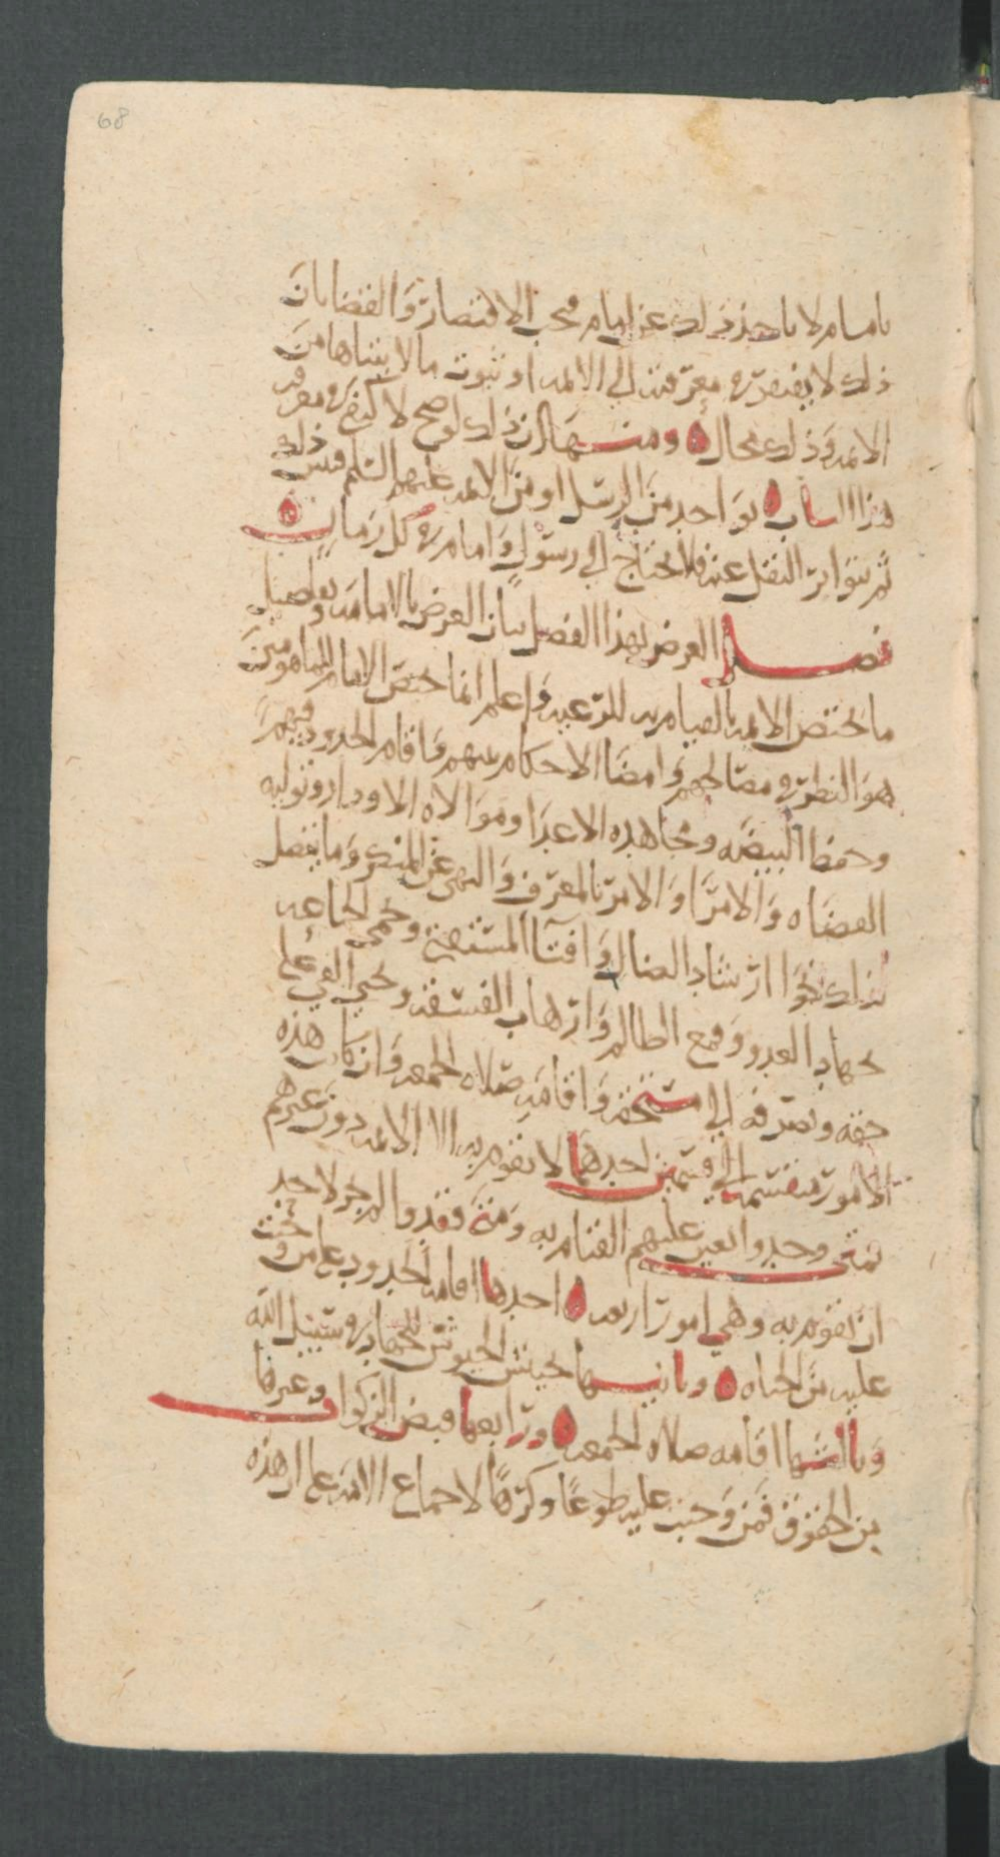 68
بامام لا ياخذ ذلك عن امام فيجب الاقتصار والقضا بان
ذلك لا يفتقر في معرفته الى الائمه او ثبوت ما لا يتناها من
الائمه وذلك محال ومنها ان ذلك لو صح لاكتفي في معرفه
هذا الباب بواحد من الرسل او من الائمه عليهم السلم فيبين ذلك
ثم يتواتر النقل عنه فلا يحتاج الى رسول وامام في كل زمان
فصل العرض بهذا الفصل بيان الغرض بالامامه وتفصيل
ما يختص الائمه بالقيام به للرعيه واعلم ان ما يختص الامام انما هو من
هو النظر في مصالحهم وامضا الاحكام عليهم واقام الحدود فيهم
وحفظ البيضه ومجاهده الاعدا وموالاه الاوداد وتوليه
القضاه والامرا والامر بالمعروف والنهي عن المنكر وما يتصل
بذلك نحو ارشاد الضال وافتا المستفتي وجمع الجماعه
لجهاد العدو وقمع الظالم وارهاب الفسقه وجبي الفي على
حقه وصرفه الى مستحقه واقامه صلاه الجمعه وان كان هذه
الامور منقسمه الى قسمين احدهما لا يقوم به الا الائمه دون غيرهم
فمتى وجدوا تعين عليهم القيام به ومتى فقدوا لم يجز لاحد
ان يقوم به وهي امور اربعه احدها اقامه الحدود على من وجبت
عليه من الجناه وثانيها تجييش الجيوش للجهاد في سبيل الله
وثالثها اقامه صلاه الجمعه ورابعها قبض الزكوات وغيرها
من الحقوق ممن وجبت عليه طوعا وكرها لاجماع الامه على ان هذه